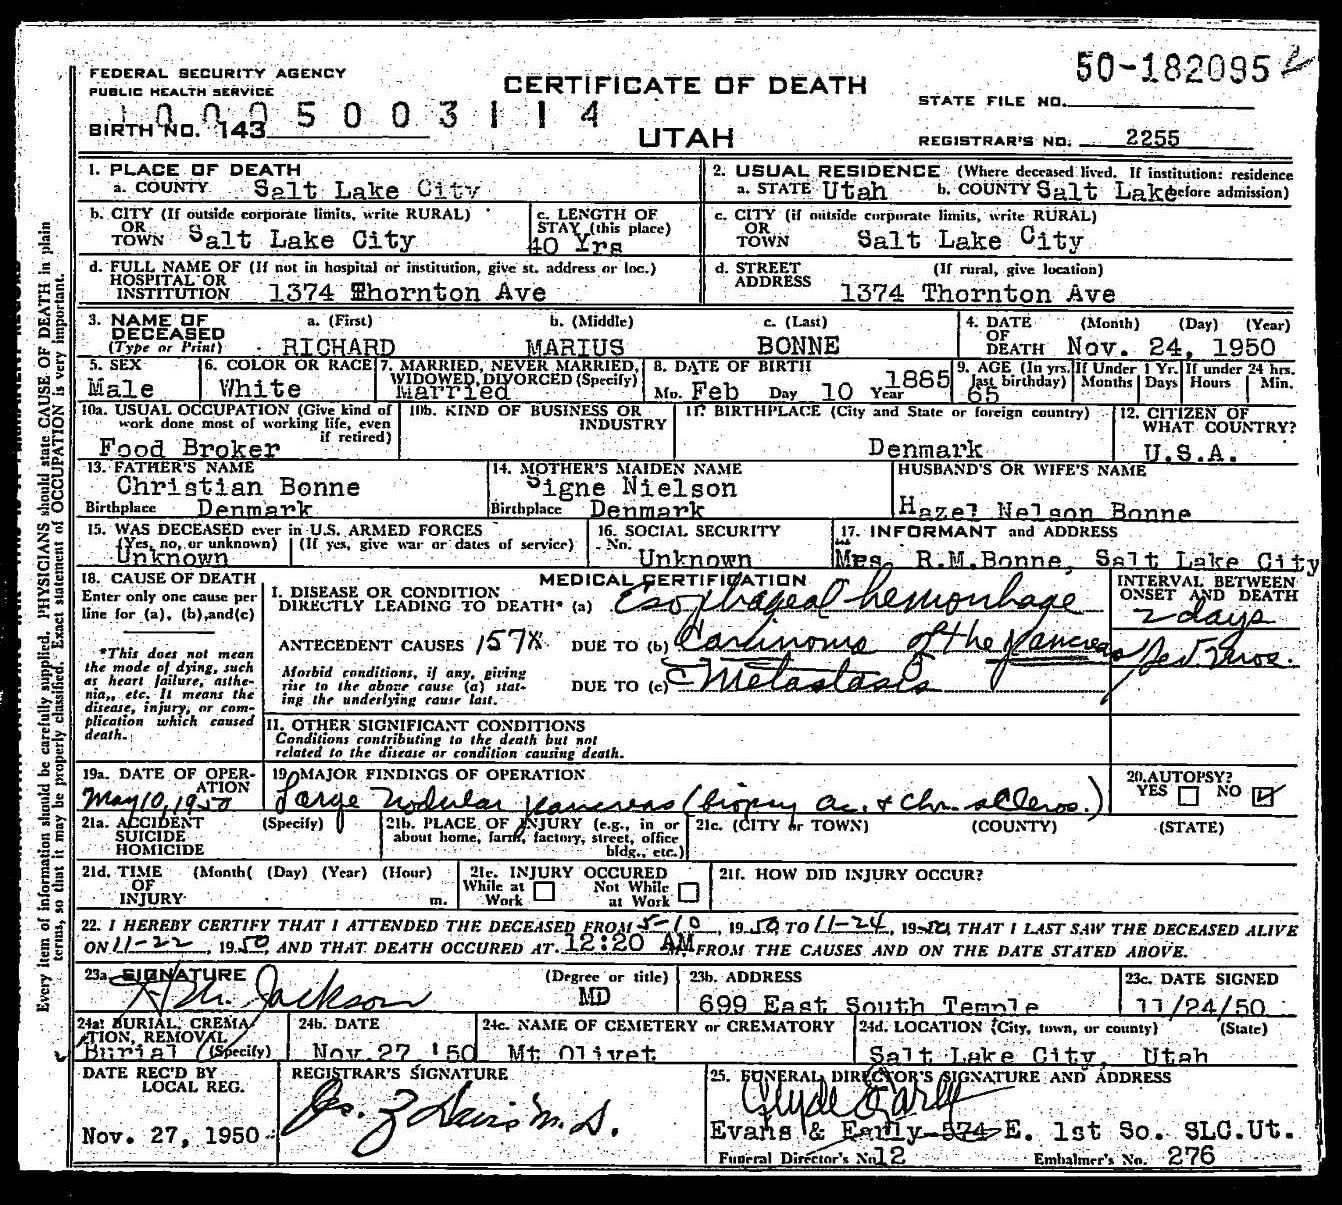 50-182095
FEDERAL SECURITY AGENCY
PUBLIC HEALTH SERVICE
CERTIFICATE OF DEATH
STATE FILE NO.
1000 5 0 0 3 1 1 4
BIRTH NO. 143
UTAH
REGISTRAR'S NO. 2255
1. PLACE OF DEATH
a. COUNTY Salt Lake City
2. USUAL RESIDENCE (Where deceased lived. If institution: residence before admission)
a. STATE Utah b. COUNTY Salt Lake
b. CITY (If outside corporate limits, write RURAL)
OR TOWN Salt Lake City
c. LENGTH OF STAY (this place)
40 Yrs
c. CITY (if outside corporate limits, write RURAL)
OR TOWN Salt Lake City
d. FULL NAME OF (If not in hospital or institution, give st. address or loc.)
HOSPITAL OR INSTITUTION 1374 Thornton Ave
d. STREET ADDRESS (If rural, give location)
1374 Thornton Ave
3. NAME OF DECEASED (Type or Print)
a. (First) b. (Middle) c. (Last)
RICHARD MARIUS BONNE
4. DATE OF DEATH (Month) (Day) (Year)
Nov. 24, 1950
5. SEX
Male
6. COLOR OR RACE
White
7. MARRIED, NEVER MARRIED, WIDOWED, DIVORCED (Specify)
Married
8. DATE OF BIRTH
Mo. Feb Day 10 Year 1885
9. AGE (In yrs. last birthday)
65
If Under 1 Yr. Months Days
If under 24 hrs. Hours Min.
10a. USUAL OCCUPATION (Give kind of work done most of working life, even if retired)
Food Broker
10b. KIND OF BUSINESS OR INDUSTRY
11. BIRTHPLACE (City and State or foreign country)
Denmark
12. CITIZEN OF WHAT COUNTRY?
U.S.A.
13. FATHER'S NAME
Christian Bonne
Birthplace Denmark
14. MOTHER'S MAIDEN NAME
Signe Nielson
Birthplace Denmark
HUSBAND'S OR WIFE'S NAME
Hazel Nelson Bonne
15. WAS DECEASED ever in U.S. ARMED FORCES
(Yes, no, or unknown) (If yes, give war or dates of service)
Unknown
16. SOCIAL SECURITY No.
Unknown
17. INFORMANT and ADDRESS
Mrs. R.M.Bonne, Salt Lake City
18. CAUSE OF DEATH
Enter only one cause per line for (a), (b), and (c)
*This does not mean the mode of dying, such as heart failure, asthenia,, etc. It means the disease, injury, or complication which caused death.
MEDICAL CERTIFICATION
INTERVAL BETWEEN ONSET AND DEATH
I. DISEASE OR CONDITION DIRECTLY LEADING TO DEATH* (a) Esophageal hemorrhage
2 days
ANTECEDENT CAUSES 157X DUE TO (b) Carcinoma of the pancreas
mos.
Morbid conditions, if any, giving rise to the above cause (a) stating the underlying cause last.
DUE TO (c) c Metastasis
II. OTHER SIGNIFICANT CONDITIONS
Conditions contributing to the death but not related to the disease or condition causing death.
19a. DATE OF OPERATION
May 10, 1950
19. MAJOR FINDINGS OF OPERATION
Large nodular pancreas (biopsy ac. + Chr. scleros.)
20. AUTOPSY?
YES NO
21a. ACCIDENT SUICIDE HOMICIDE (Specify)
21b. PLACE OF INJURY (e.g., in or about home, farm, factory, street, office bldg., etc.)
21c. (CITY or TOWN) (COUNTY) (STATE)
21d. TIME OF INJURY (Month( (Day) (Year) (Hour) m.
21e. INJURY OCCURED
While at Work Not While at Work
21f. HOW DID INJURY OCCUR?
22. I HEREBY CERTIFY THAT I ATTENDED THE DECEASED FROM 5-10, 1950 TO 11-24, 1950, THAT I LAST SAW THE DECEASED ALIVE
ON 11-22, 1950, AND THAT DEATH OCCURED AT. 12:20 AM FROM THE CAUSES AND ON THE DATE STATED ABOVE.
23a. SIGNATURE (Degree or title)
Jackson MD
23b. ADDRESS
699 East South Temple
23c. DATE SIGNED
11/24/50
24a. BURIAL, CREMATION, REMOVAL (Specify)
Burial
24b. DATE
Nov.27 '50
24c. NAME OF CEMETERY or CREMATORY
Mt Olivet
24d. LOCATION (City, town, or county) (State)
Salt Lake City, Utah
DATE REC'D BY LOCAL REG.
Nov. 27, 1950
REGISTRAR'S SIGNATURE
25. FUNERAL DIRECTOR'S SIGNATURE AND ADDRESS
Clyde Early
Evans & Early 574 E. 1st So. SLC.Ut.
Funeral Director's No. 12 Embalmer's No. 276
Every item of information should be carefully supplied. PHYSICIANS should state CAUSE OF DEATH in plain
terms, so that it may be properly classified. Exact statement of OCCUPATION is very important.